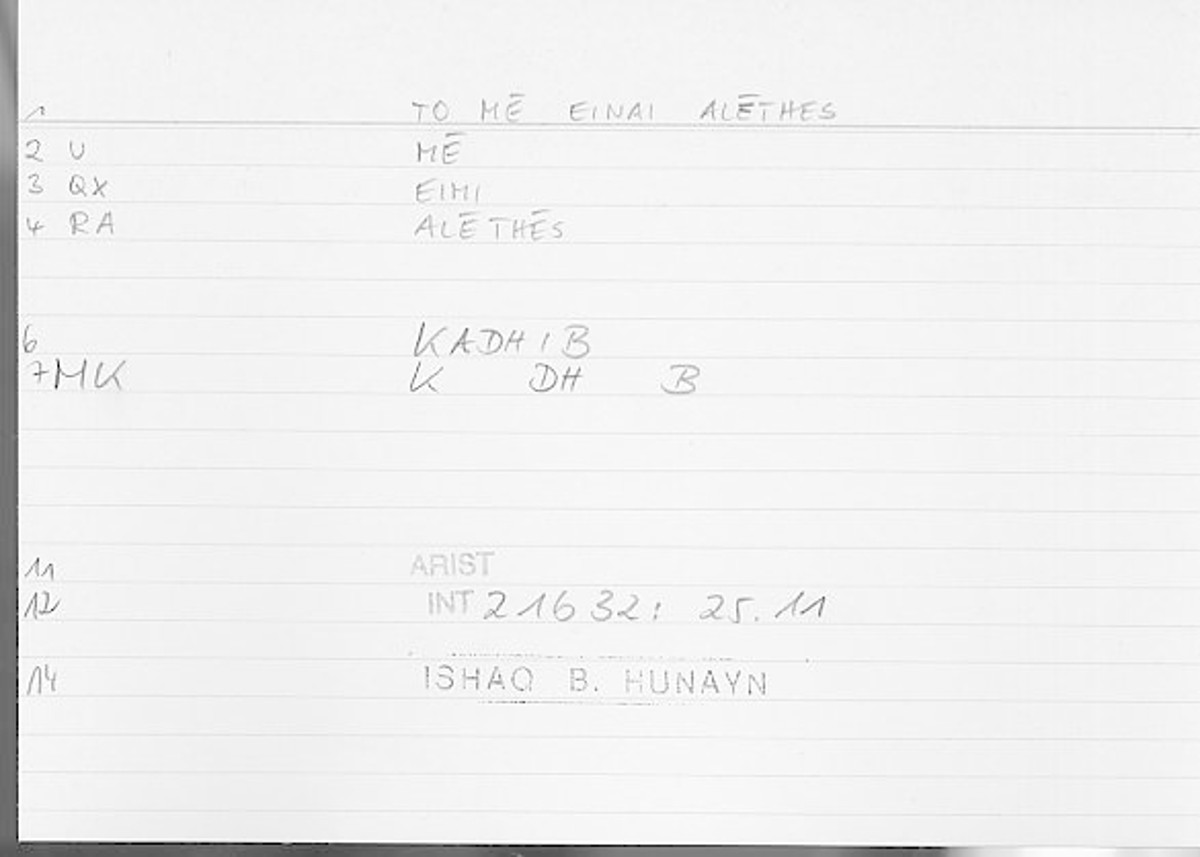 1 TO MĒ EINAI ALĒTHES
2 U MĒ
3 QX EIMI
4 RA ALĒTHĒS
6 KADHIB
7 MK K DH B
11 ARIST
12 INT 21632: 25.11
14 ISHAQ B. HUNAYN